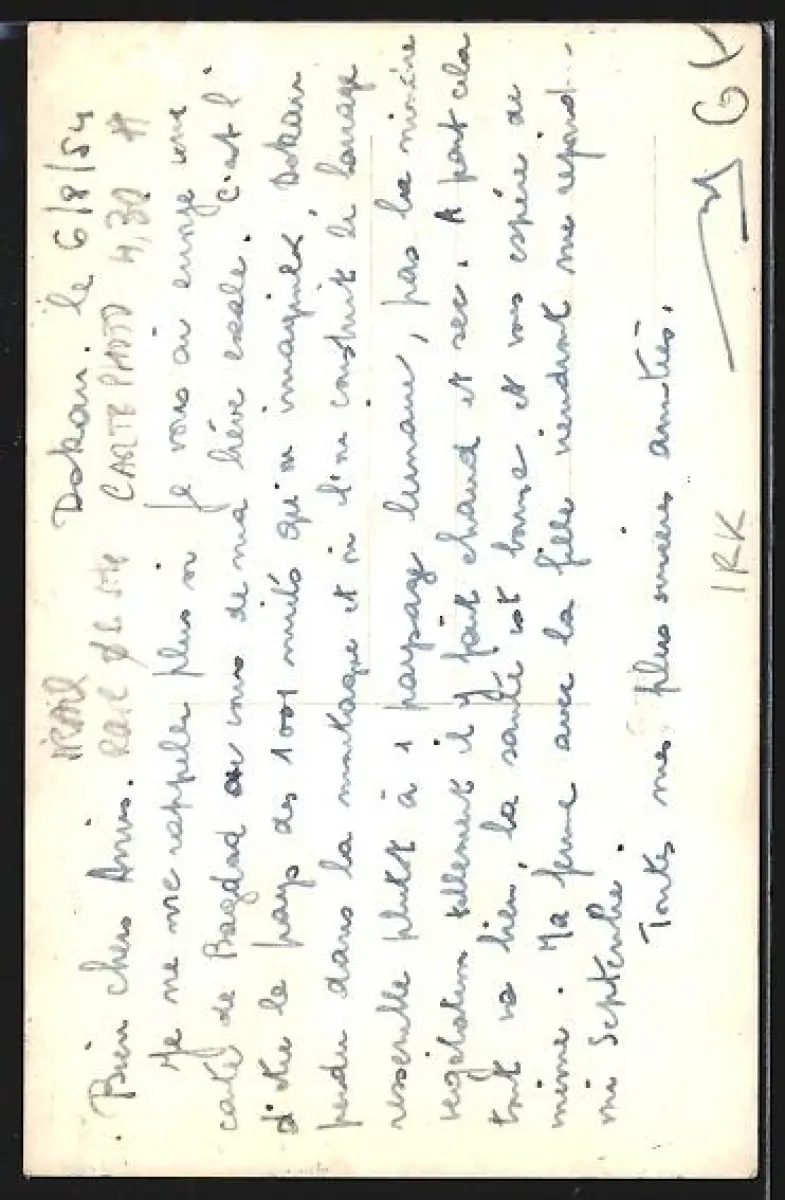 Dokan. le 6/8/54
IRAQ
CARTE PHOTO 4,30 #
Bien chers Amis.
Je ne me rappelle plus si je vous ai envoyé une
carte de Bagdad au cours de ma brève escale. C'est l'
d'être le pays des 1001 nuits qu'on imaginait, Dokan
perdu dans la montagne et où l'on construit le barrage
ressemble plutôt à 1 paysage lunaire, pas la moindre
végétation tellement il y fait chaud et sec. A part cela
tout va bien, la santé est bonne et vous espère de
même. Ma femme avec la fille viendront me rejoind..
mi Septembre.
Toutes mes plus sincères amitiés.
IRK
GK